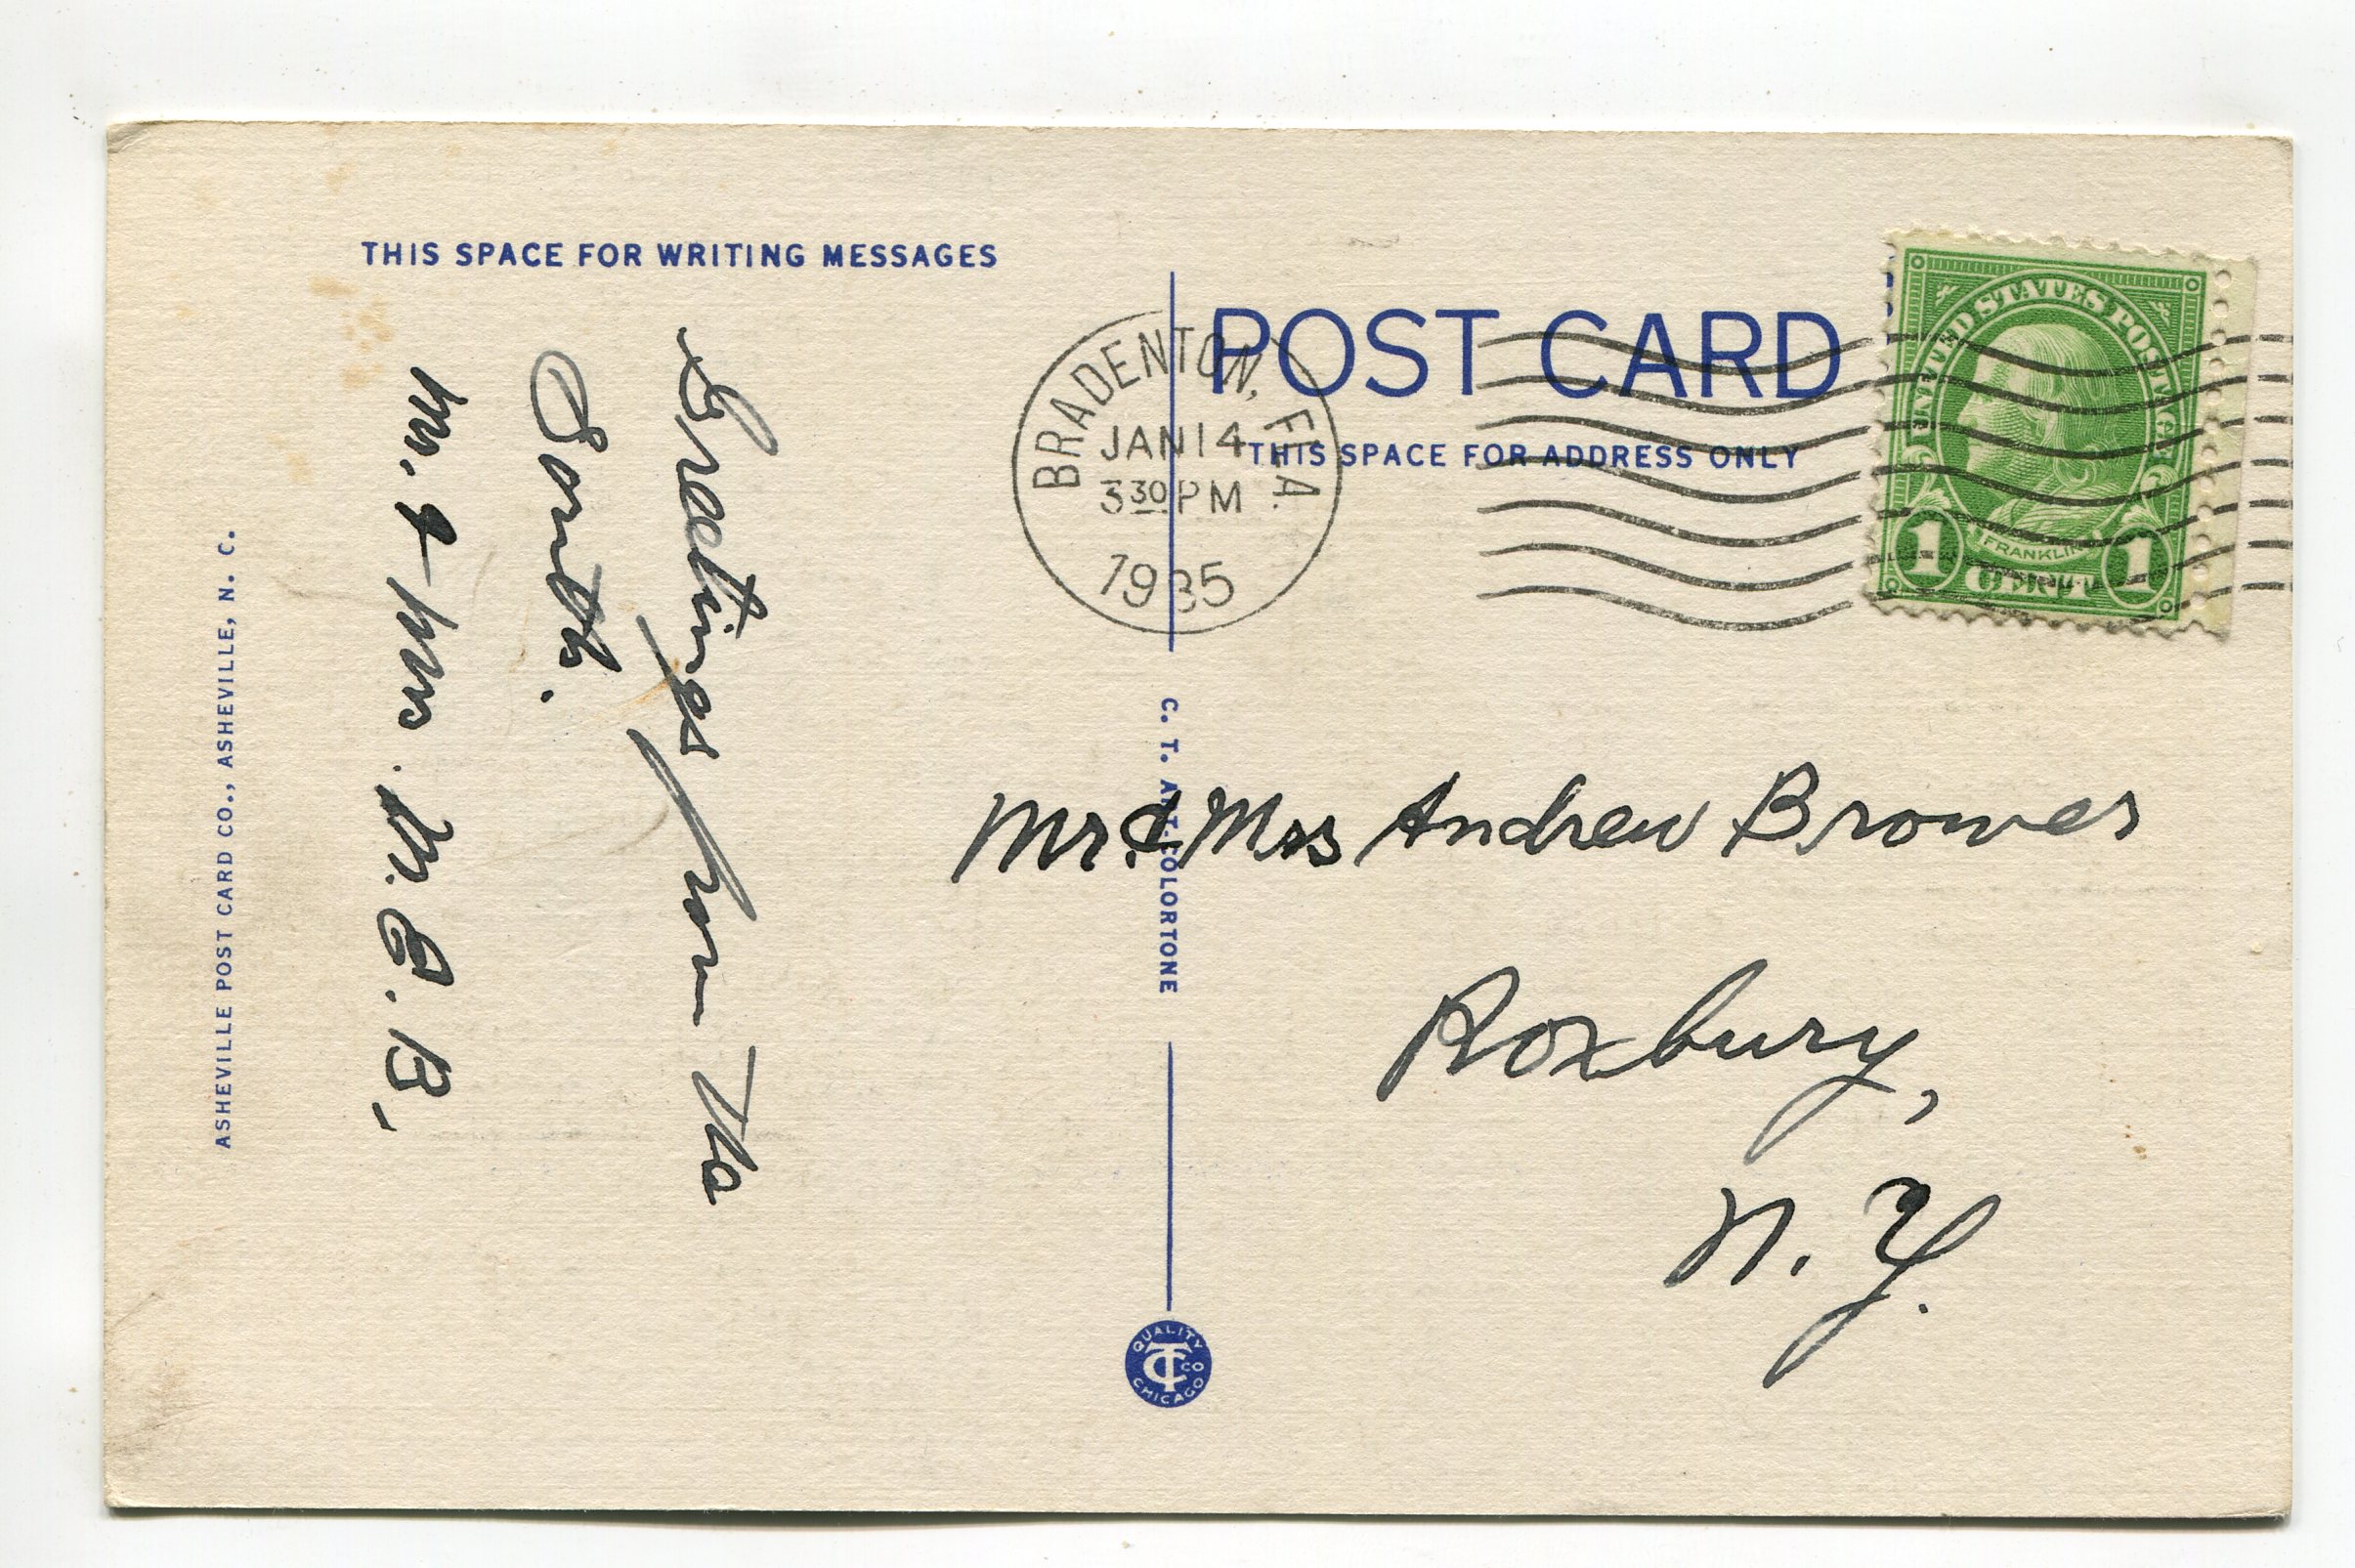 THIS SPACE FOR WRITING MESSAGES
Greetings from The
South.
Mr. & Mrs. M. C. B.,
ASHEVILLE POST CARD CO., ASHEVILLE, N. C.
BRADENTON, FLA.
JAN 14
3 30 PM
1935
POST CARD
THIS SPACE FOR ADDRESS ONLY
UNITED STATES POSTAGE
FRANKLIN
1 CENT 1
C. T. ART-COLORTONE
Mr. & Mrs Andrew Browes
Roxbury,
N. Y.
QUALITY
CT CO
CHICAGO